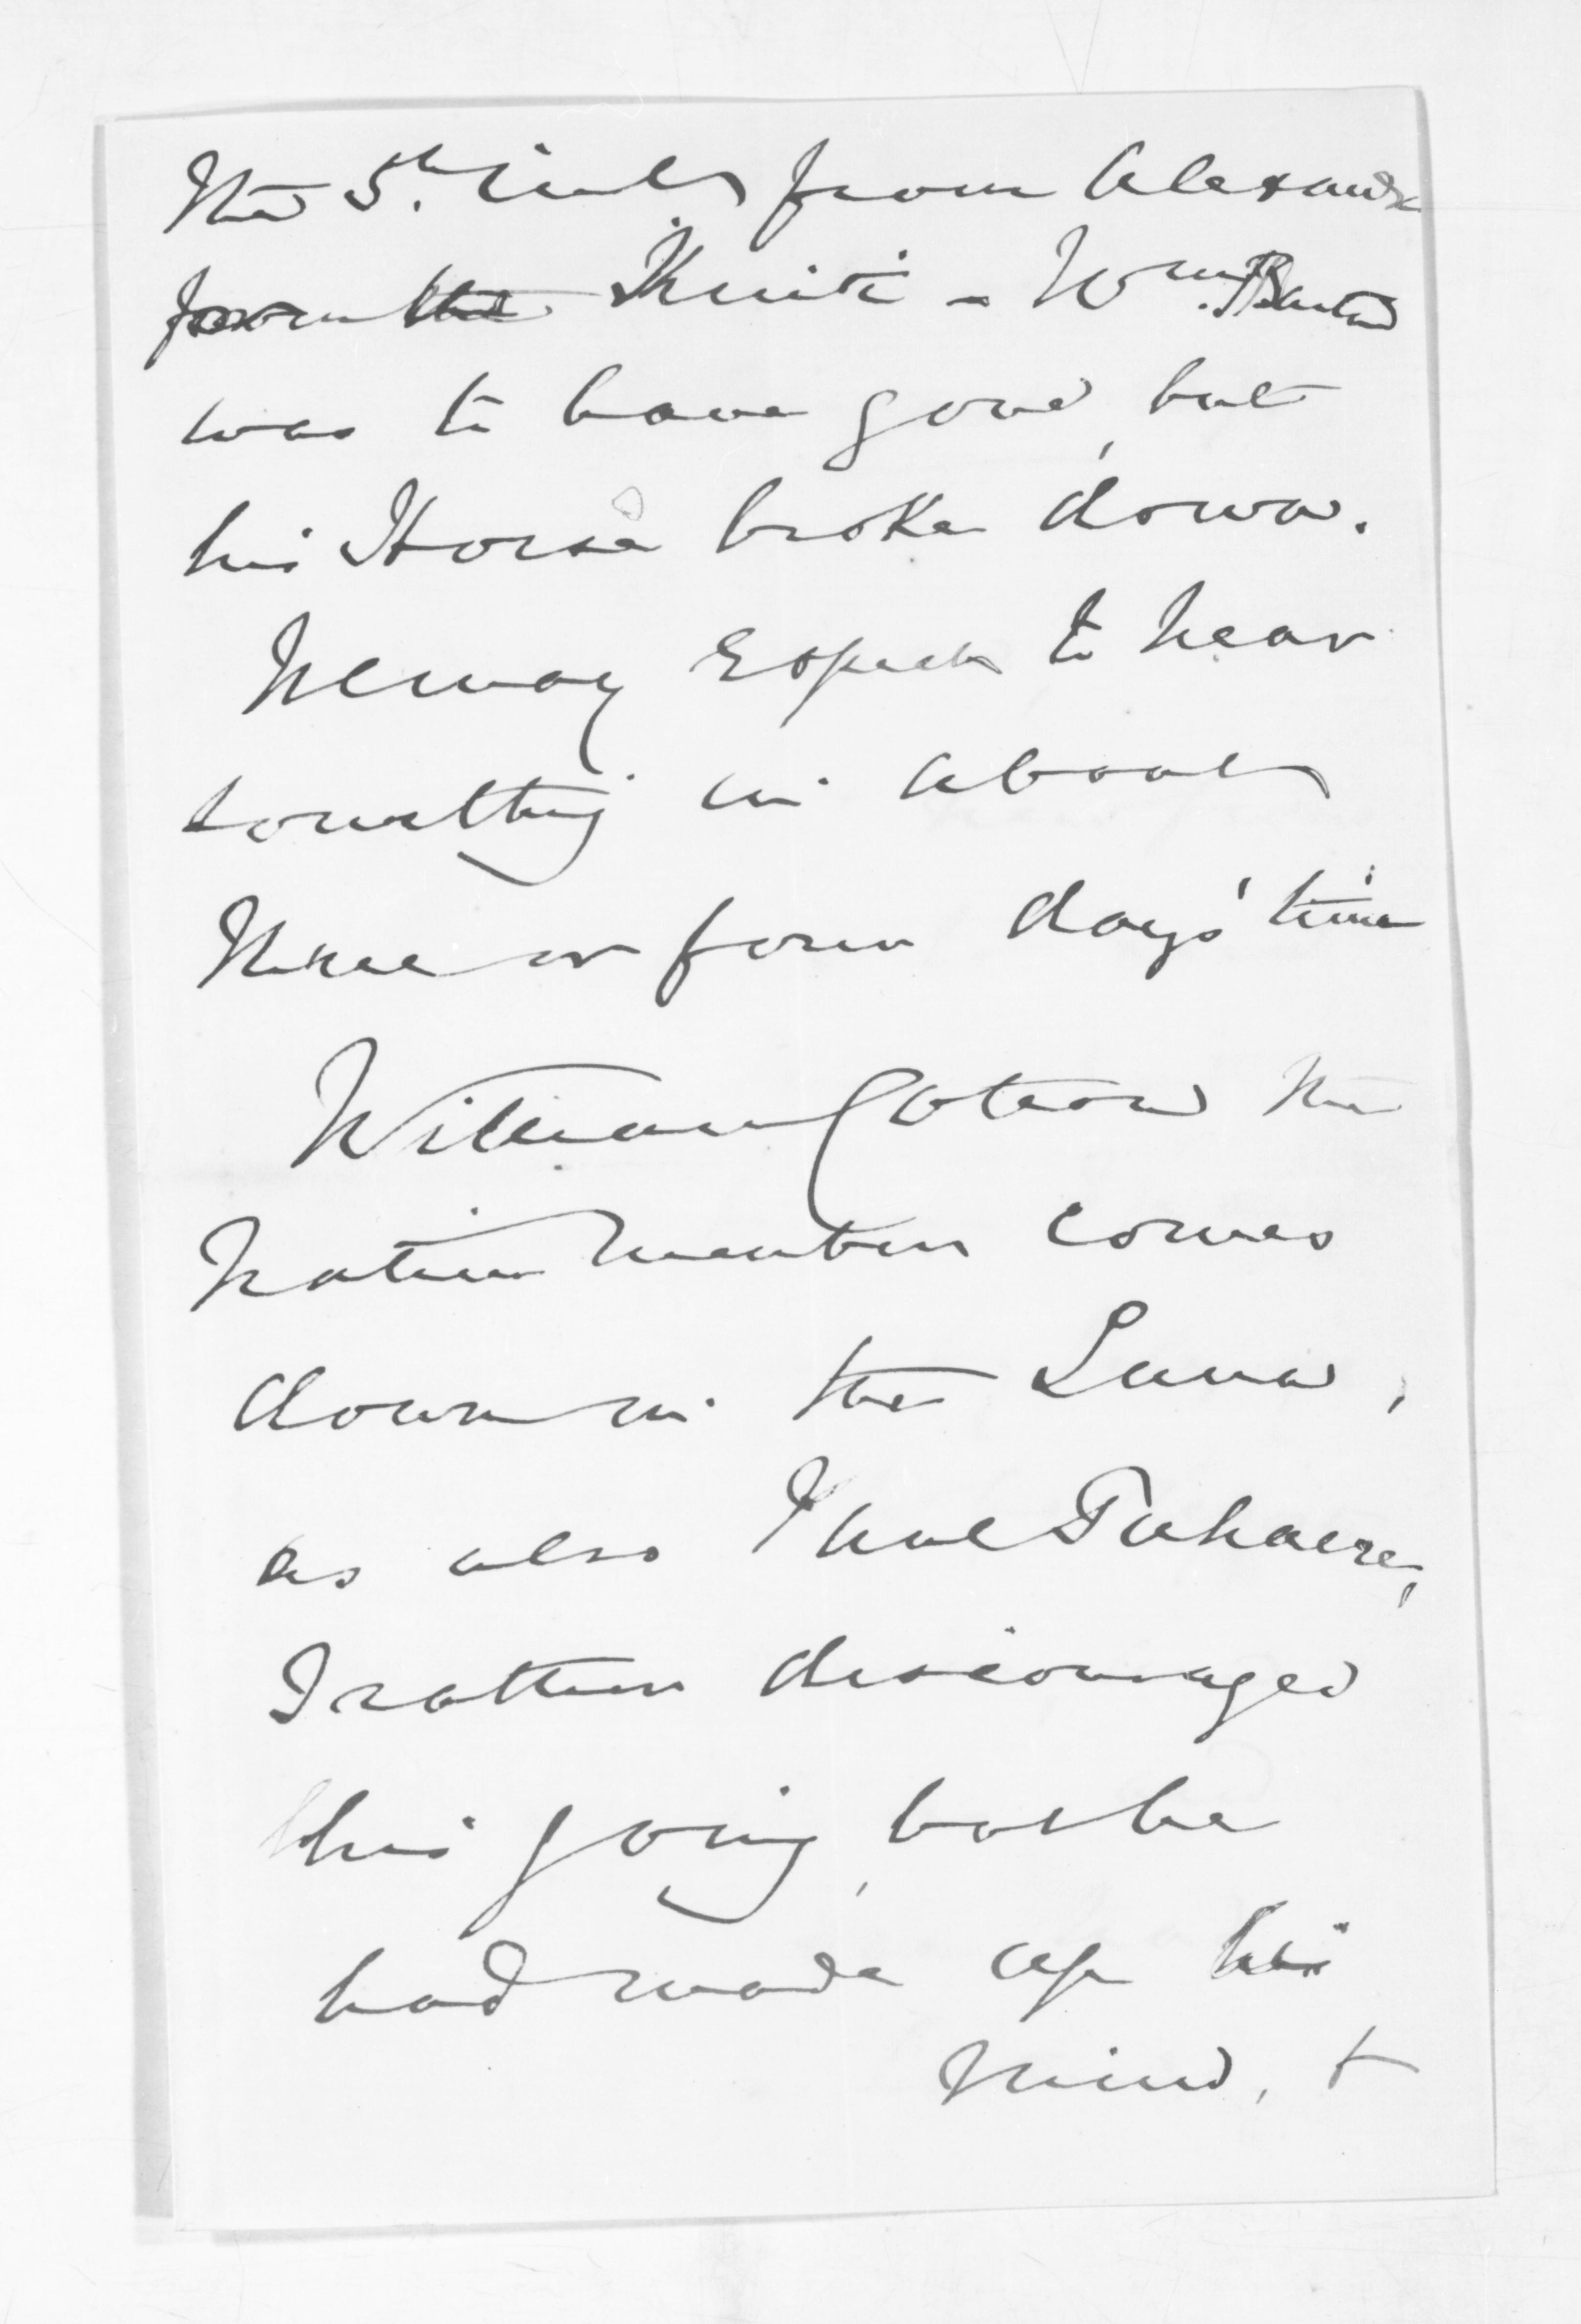 the 5th inst from Alexandra
from the Kuiti - Wm
was to have gone, but
his Horse broke down.
We may expect to hear
something in about
three or four days' time
William Katene the
Native Member comes
down in the Luna,
as also Paul Tuhaere,
I rather discouraged
his going, but he
had made up his
mind, &